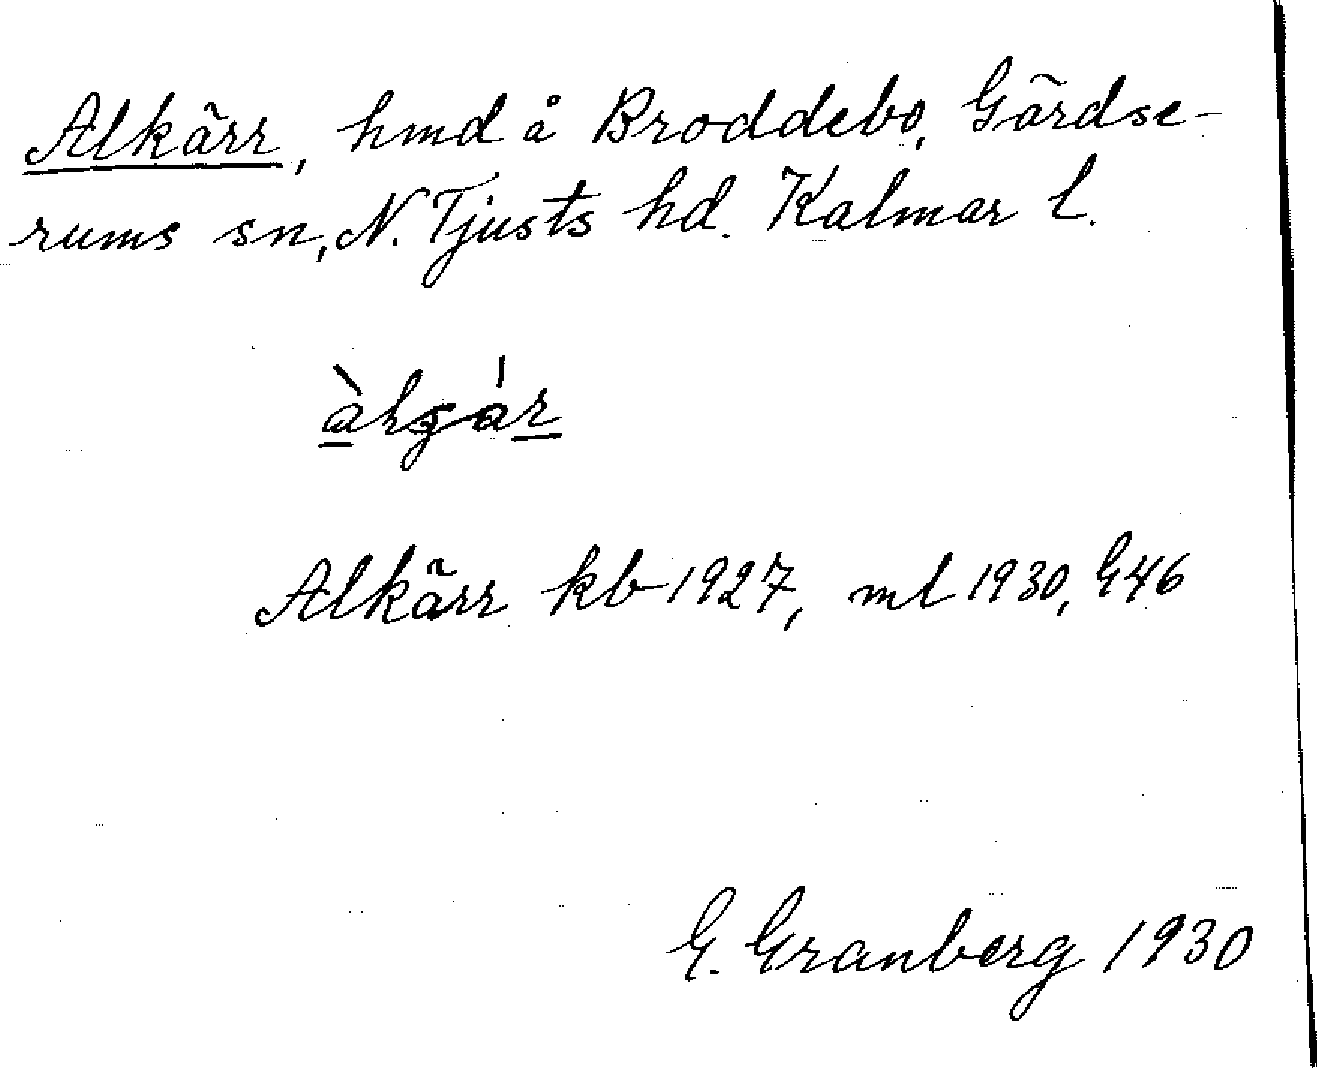 Alkärr, hmd å Broddebo, Gärdse-
rums sn, N. Tjusts hd. Kalmar l.
Alkärr kb 1927, ml 1930, G46
G. Granberg 1930